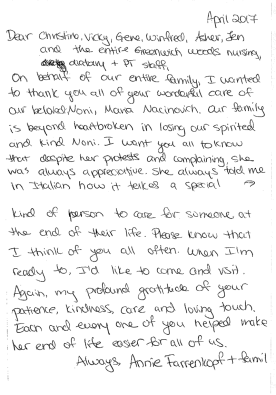 April 2017
Dear Christine, Vicky, Gene, Winifred, Asher, Jen
and the entire Greenwich woods nursing,
dietary + PT staff,
On behalf of our entire family, I wanted
to thank you all of your wonderful care of
our beloved Noni, Maria Nacinovich. Our family
is beyond heartbroken in losing our spirited
and kind Noni. I want you all to know
that despite her protests and complaining, she
was always appreciative. She always told me
in Italian how it takes a special →
kind of person to care for someone at
the end of their life. Please know that
I think of you all often. When I'm
ready to, I'd like to come and visit.
Again, my profound gratitude of your
patience, kindness, care and loving touch.
Each and every one of you helped make
her end of life easier for all of us.
Always Annie Farrenkopf + famil